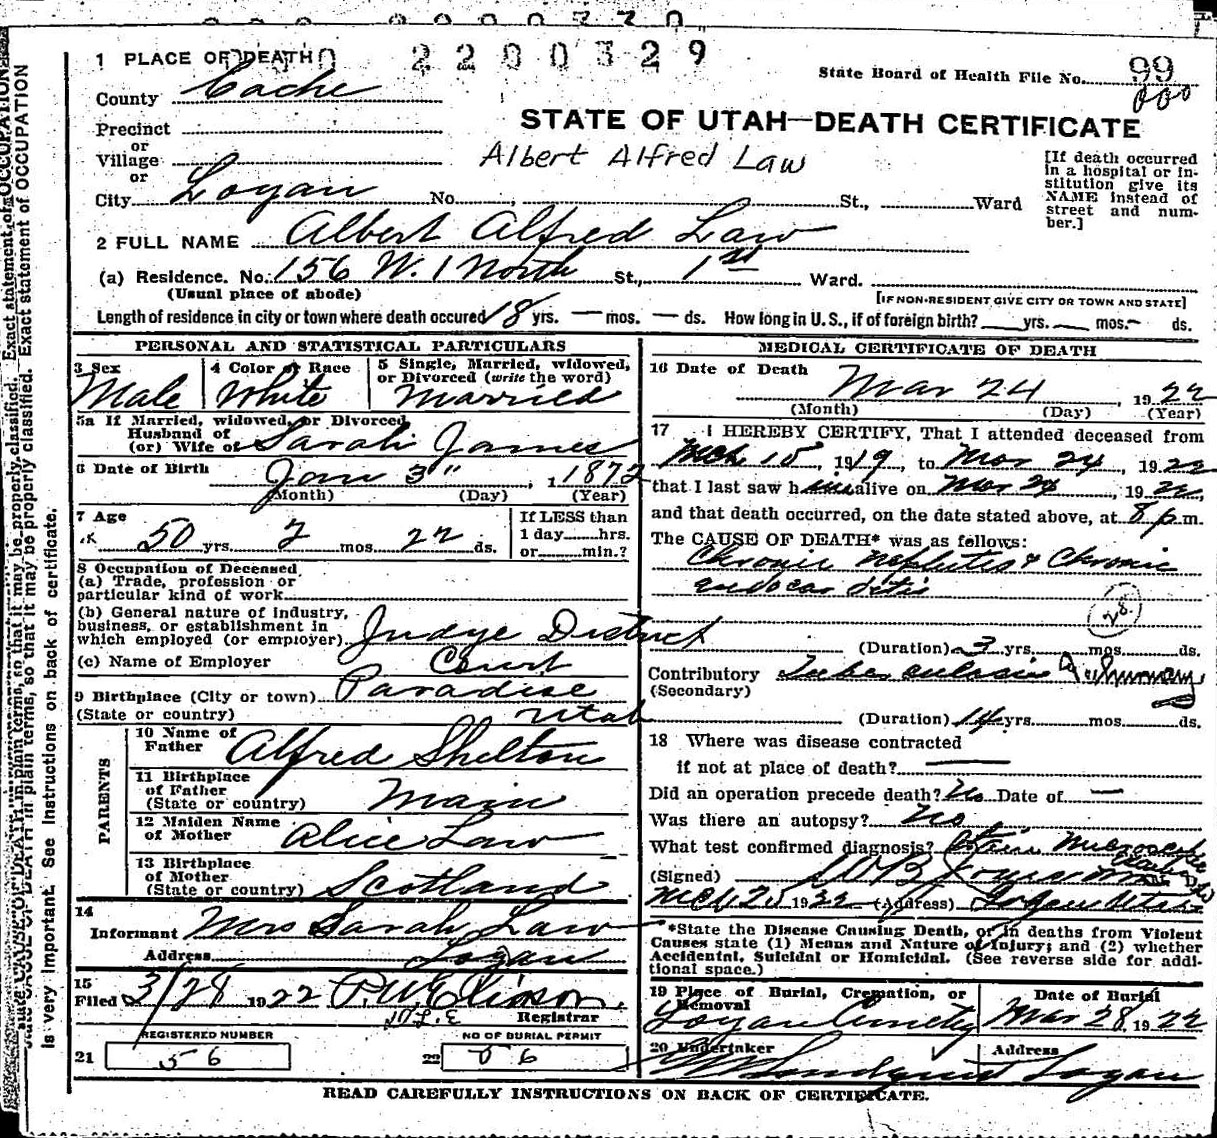 2200329
1 PLACE OF DEATH
State Board of Health File No. 99
County Cache
STATE OF UTAH—DEATH CERTIFICATE
Precinct
or
Village
or
Albert Alfred Law
[If death occurred in a hospital or institution give its NAME instead of street and number.]
City Logan No. , St., Ward
2 FULL NAME Albert Alfred Law
(a) Residence. No. 156 W. 1 North St., 1st Ward.
(Usual place of abode)
[IF NON-RESIDENT GIVE CITY OR TOWN AND STATE]
Length of residence in city or town where death occured 18 yrs. — mos. — ds. How long in U. S., if of foreign birth? — yrs. — mos. — ds.
PERSONAL AND STATISTICAL PARTICULARS
3 Sex Male
4 Color or Race White
5 Single, Married, widowed, or Divorced (write the word) Married
5a If Married, widowed, or Divorced
Husband of
(or) Wife of Sarah James
6 Date of Birth Jan 3" , 1872
(Month) (Day) (Year)
7 Age 50 yrs. 2 mos. 22 ds.
If LESS than
1 day hrs.
or min.?
8 Occupation of Deceased
(a) Trade, profession or
particular kind of work
(b) General nature of industry,
business, or establishment in
which employed (or employer) Judge District
(c) Name of Employer Court
9 Birthplace (City or town) Paradise
(State or country) Utah
PARENTS
10 Name of
Father Alfred Shelton
11 Birthplace
of Father
(State or country) Main
12 Maiden Name
of Mother Alice Law
13 Birthplace
of Mother
(State or country) Scotland
14
Informant Mrs Sarah Law
Address Logan
15
Filed 3/28 1922
Registrar
REGISTERED NUMBER
21 56
NO OF BURIAL PERMIT
22 56
MEDICAL CERTIFICATE OF DEATH
16 Date of Death Mar 24 , 1922
(Month) (Day) (Year)
17 I HEREBY CERTIFY, That I attended deceased from
Mch 15, 1919, to Mar 24, 1922
that I last saw him alive on Mar 24, 1922,
and that death occurred, on the date stated above, at 8 p.m.
The CAUSE OF DEATH* was as follows:
Chronic Nephritis & Chronic
endocarditis
28
(Duration) 3 yrs. mos. ds.
Contributory Tuberculosis
(Secondary)
(Duration) 14 yrs. mos. ds.
18 Where was disease contracted
if not at place of death? —
Did an operation precede death? No Date of —
Was there an autopsy? No
What test confirmed diagnosis?
(Signed)
Mch 25 1922 (Address) Logan Utah
*State the Disease Causing Death, or in deaths from Violent
Causes state (1) Means and Nature of Injury; and (2) whether
Accidental, Suicidal or Homicidal. (See reverse side for additional space.)
19 Place of Burial, Cremation, or
Removal
Logan Cemetery
Date of Burial
Mar 28, 1922
20 Undertaker
Address
Logan
READ CAREFULLY INSTRUCTIONS ON BACK OF CERTIFICATE.
Exact statement of OCCUPATION
is very important. See instructions on back of certificate.